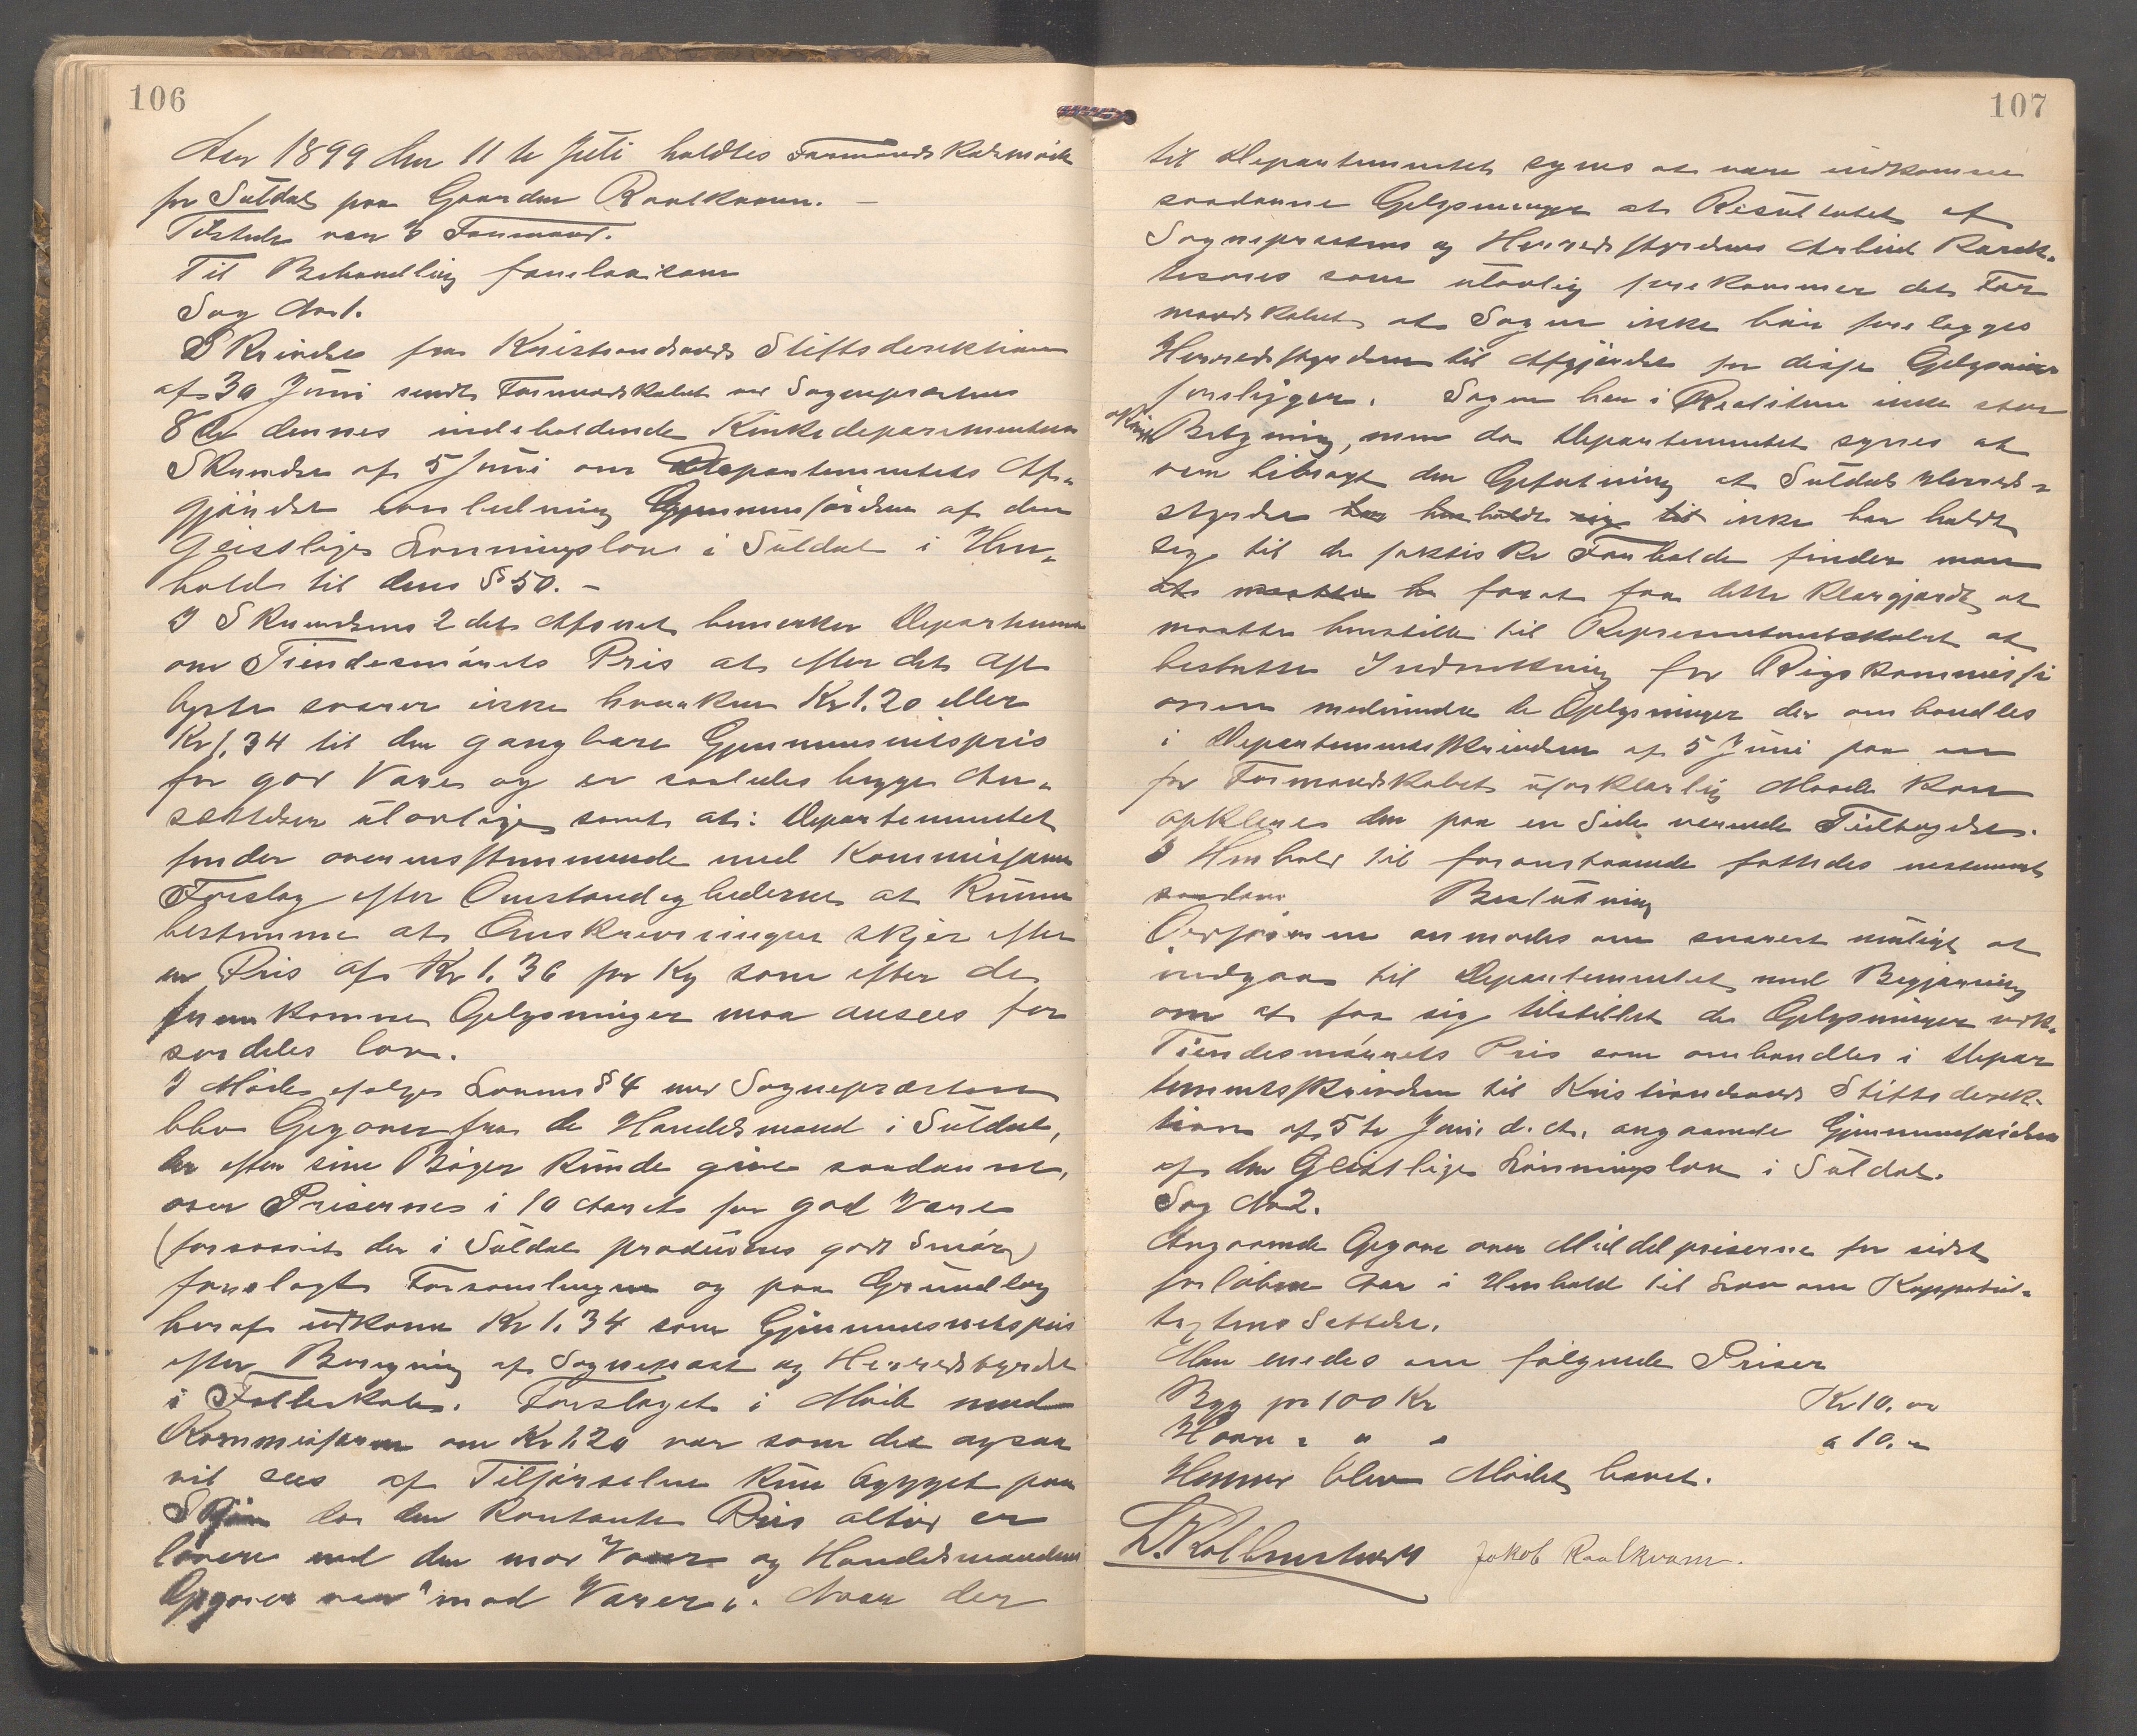 106
Aar 1899 den 11 te Juli holdtes Formandskabsmöde
for Suldal paa Gaarden Roalkvam. –
Tilstede var 3 Formænd.
Til Behandling forelaa: som
Sag No 1.
Skrivelse fra Kristiansands Stiftsdirektion
af 30 Juni sendt Formandskabet ved Sognepræsten
8 de dennes indeholdende Kirkedepartementets
Skrivelse af 5 Juni om Departementets Af-
gjörelse Gjennemförelsen af den
Geistlige Lönningslov i Suldal i Hen-
hold til dens § 50. –
I Skrivelsens 2 det Afsnit bemerker Departementet
om Tiendesmörrets Pris at efter det Op
lyste svarer ikke hverken Kr 1,20 eller
Kr 1,34 til den gangbare Gjennemsnitspris
for god Vare og er saaledes begge An-
sættelser ulovlige samt at: Departementet
finder overensstemmende med Kommissærens
Forslag efter Omstændighederne at kunne
bestemme at Omskrivningen skjer efter
en Pris af Kr 1,36 pr Kg som efter de
fremkomne Oplysninger maa ansees for
særdeles lav.
I Möde efölge Lovens § 4 med Sognepræsten
blev Opgaver fra de Handelsmænd i Suldal,
der efter sine Böger kunde give saadanne,
over Priserne i 10 Aaret for god Vare
(forsaavidt der i Suldal produceres godt Smör)
forelagt Forsamlingen og paa Grundlag
heraf udkom Kr 1,34 som Gjennemsnitspris
efter Beregning af Sogneprest og Herredsstyrelse
i Fælleskab. Forslaget i Möde med
Kommissæren om Kr 1,20 var som det ogsaa
vil sees af Tilförselen kun bygget paa
Skjön da den kontante Pris altid er
lavere end den mod Varer og Handelsmændenes
Opgaver var "mod Varer". Naar der
107
til Departementet synes at være indkomne
saadanne Oplysninger at Resultatet af
Sognepræstens og Herredsstyrelsens Arbeid karak-
teseres som ulovlig forekommer det For
mandskabet at Sagen ikke bör forelægges
Herredsstyrelsen til Afgjörelse för disse Oplysninger
foreligger. Sagen har i Realiteten ikke stor
Betydning, men da Departementet synes at
være bibragt den Opfatning at Suldals Herreds-
styrelse har holdt sig til ikke har holdt
sig til de faktiske Forholde finder man
at maatte for at faa dette klargjordt at
maatte henstille til Repræsentantskabet at
beslutte Indretning for Rigskommissi
onen medmindre de Oplysninger der omhandles
i Departementsskrivelsen af 5 Juni paa en
for Formandskabet uforklarlig Maade kan
opklares den paa en Side værende Tilbøielse.
I Henhold til foranstaaende fattedes enstemmig
saadan Beslutning
Ordföreren anmodes om snarest muligt at
indgaa til Departementet med Begjæring
om at faa sig tilstillet de Oplysninger vedk.
Tiendesmörrets Pris som omhandles i Depar
tementsskrivelsen til Kristiansands Stiftsdirek-
tion af 5 te Juni d. A. angaaende Gjennemförelsen
af den Geistlige Lönningslov i Suldal.
Sag No 2.
Angaaende Opgave over Middelpriserne for sidst
forlöbne Aar i Henhold til Lov om Kapitel-
taxtens Settelse.
Man enedes om fölgende Priser
Byg pr 100 Kr Kr 10,00
Havre " " " " 10,"
Hermed blev Mödet hævet.
L. Kolbenstvedt Jakob Roalkvam.